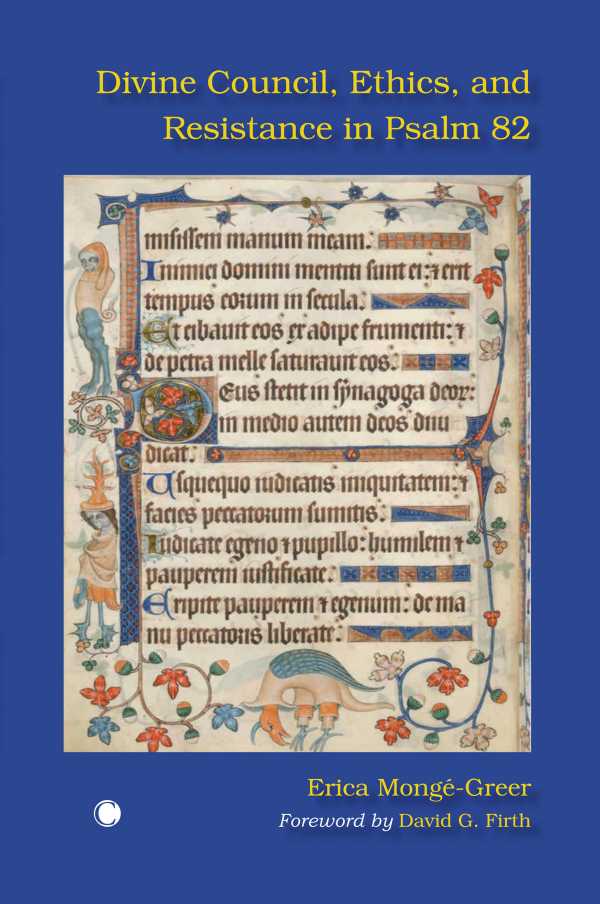 Divine Council, Ethics, and
Resistance in Psalm 82
misissem manum meam:
Inimici domini mentiti sunt ei: ⁊ erit
tempus eorum in secula.
Et cibauit eos ex adipe frumenti: ⁊
de petra melle saturauit eos.
Deus stetit in synagoga deoꝝ:
in medio autem deos diiu
dicat.
Usquequo iudicatis iniquitatem: ⁊
facies peccatorum sumitis.
Iudicate egeno ⁊ pupillo: humilem ⁊
pauperem iustificate.
Eripite pauperem ⁊ egenum: de ma
nu peccatoris liberate.
Erica Mongé-Greer
Foreword by David G. Firth
C